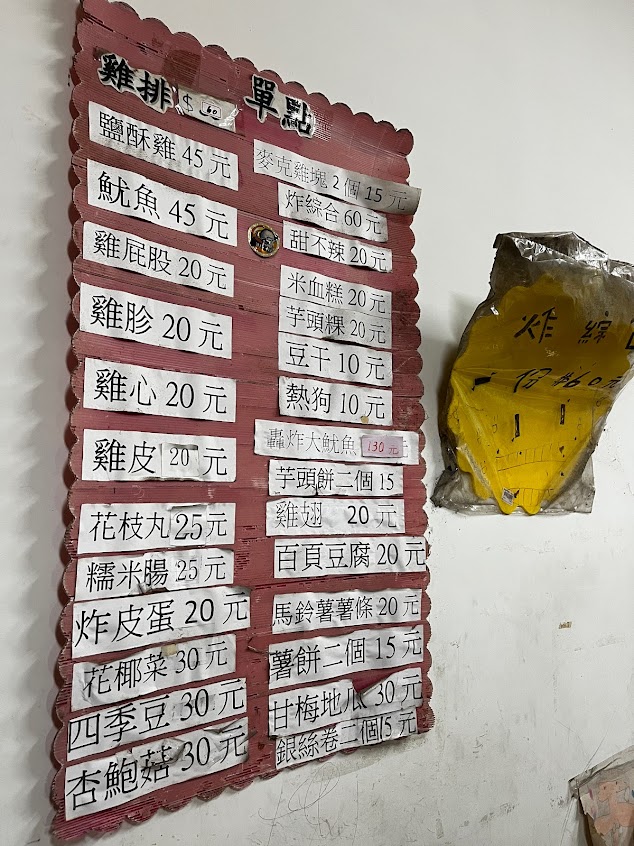 雞排 $60 單點
鹽酥雞 45 元
魷魚 45 元
雞屁股 20 元
雞胗 20 元
雞心 20 元
雞皮 20 元
花枝丸 25 元
糯米腸 25 元
炸皮蛋 20 元
花椰菜 30 元
四季豆 30 元
杏鮑菇 30 元
麥克雞塊 2 個 15 元
炸綜合 60 元
甜不辣 20 元
米血糕 20 元
芋頭粿 20 元
豆干 10 元
熱狗 10 元
轟炸大魷魚 130 元
芋頭餅二個 15
雞翅 20 元
百頁豆腐 20 元
馬鈴薯薯條 20 元
薯餅二個 15 元
甘梅地瓜 30 元
銀絲卷二個15元
炸綜
份$60元